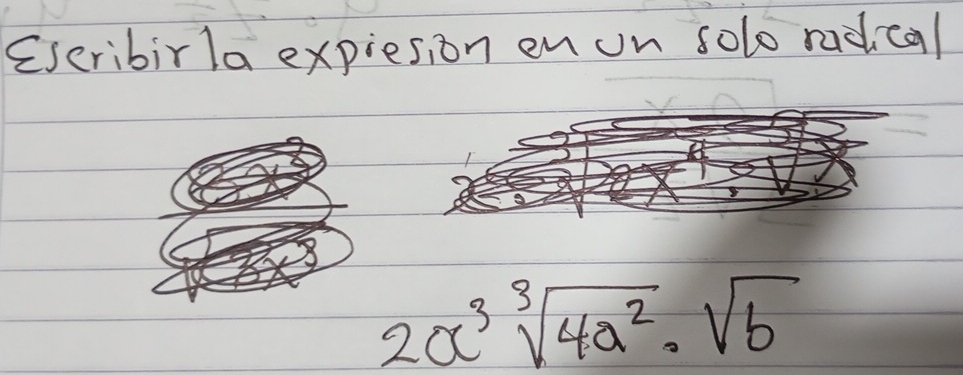 Escribir la expresión en un solo radical
2a³ ∛4a² . √b